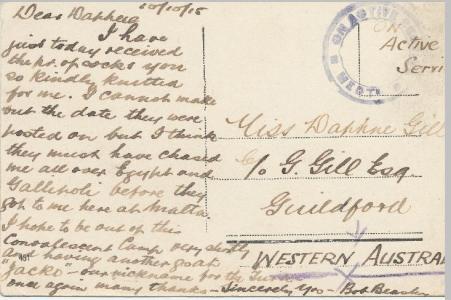 10/10/15
Dear Daphne
I have
just today received
the pr. of socks you
so kindly knitted
for me. I cannot make
out the date they were
posted on but I think
they must have chased
me all over Egypt and
Gallipoli before they
got to me here at Malta.
I hope to be out of this
Convalescent Camp very shortly
and having another go at
"Jacko" - our nickname for the
once again many thanks - Sincerely Yrs - Bob
ON ACTIVE
ON
Active
Servi
Miss Daphne Gill
C/o G. Gill Esq.
Guildford
WESTERN AUSTRA